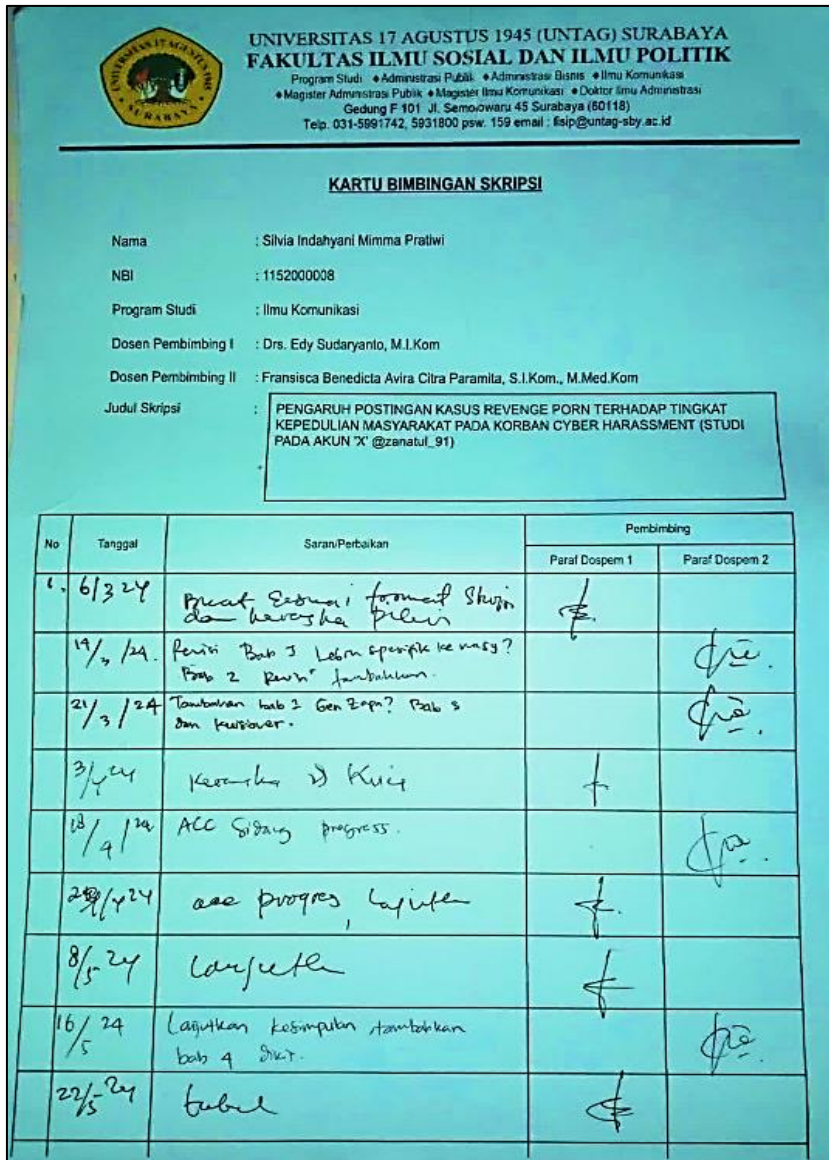 UNIVERSITAS 17 AGUSTUS 1945 (UNTAG) SURABAYA
FAKULTAS ILMU SOSIAL DAN ILMU POLITIK
Program Studi ♦Administrasi Publik ♦Administrasi Bisnis ♦Ilmu Komunikasi
♦Magister Administrasi Publik ♦Magister Ilmu Komunikasi ♦Doktor Ilmu Administrasi
Gedung F 101 Jl. Semolowaru 45 Surabaya (60118)
Telp. 031-5991742, 5931800 psw. 159 email : fisip@untag-sby.ac.id
KARTU BIMBINGAN SKRIPSI
Nama : Silvia Indahyani Mimma Pratiwi
NBI : 1152000008
Program Studi : Ilmu Komunikasi
Dosen Pembimbing I : Drs. Edy Sudaryanto, M.I.Kom
Dosen Pembimbing II : Fransisca Benedicta Avira Citra Paramita, S.I.Kom., M.Med.Kom
Judul Skripsi : PENGARUH POSTINGAN KASUS REVENGE PORN TERHADAP TINGKAT
KEPEDULIAN MASYARAKAT PADA KORBAN CYBER HARASSMENT (STUDI
PADA AKUN 'X' @zanatul_91)
No Tanggal Saran/Perbaikan Pembimbing
Paraf Dospem 1 Paraf Dospem 2
1. 6/3 24 format
dan
/3 /24. Revisi Bab
Bab 2 tambahkan.
21/3/24 bab Gen Bab
dan
3/4 24
18/4/24 ACC Sidang progress.
/4 24 acc progres,
8/5 24
16/5 24 Lanjutkan kesimpulan tambahkan
bab 4 dikit.
22/5 24